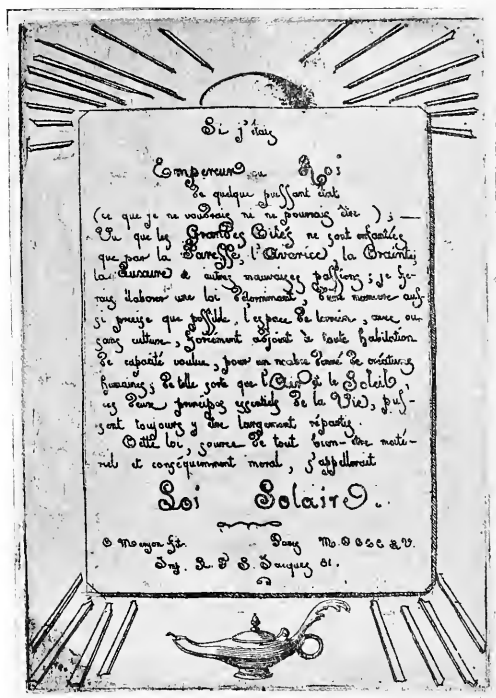 Si j'étais
Empereur ou Roi
de quelque puissant état
(ce que je ne voudrais ni ne pourrais être) ; —
Vu que les Grandes Cités ne sont enfantées
que par la Paresse, l'Avarice, la Crainte,
la Luxure & autres mauvaises passions ; je fe-
rais élaborer une loi déterminant, d'une manière aus-
si précise que possible, l'espace de terrain, avec ou
sans culture, forcément adjoint à toute habitation
de capacité voulue, pour un nombre donné de créatures
humaines ; de telle sorte que l'Air et le Soleil,
ces deux principes essentiels de la Vie, puis-
sent toujours y être largement répartis.
Cette loi, source de tout bien-être maté-
riel et conséquemment moral, s'appellerait
Loi Solaire.
C Meryon fit. Paris M.DCCCLV.
Imp. R. N. S. Jacques 81.